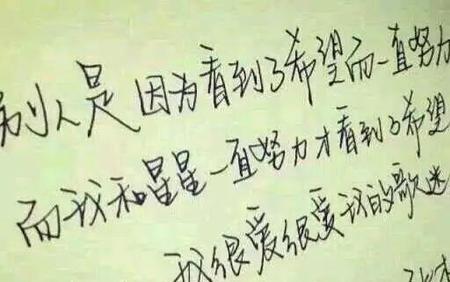 别人是因为看到了希望而一直努力
而我和星星一直努力才看到了希望
我很爱很爱我的歌迷
张杰